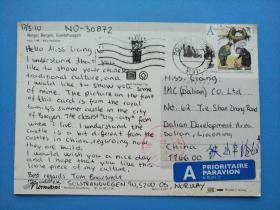 17/3-10 NO-30872
Norge: Bergen, Gamlehaugen
Hello Miss Liang,
I understand that you
like to show your chinese
traditional culture, and
I would like to show you some
of mine. The picture on the front
of this card is from the royal
family's summer castle in the city
of Bergen. The closest "big city" from
where I live. I understand the
castle is a bit different from the
castle in china, regarding how
they are build.
I would wish you a nice day
and I hope that you like this
little piece of my culture.
Best Regards Tom
5200 OS, NORWAY
Miss. Liang
(Dalian) CO. Ltd
No. 62 Tie Shan Zhong Road
Dalian Development Area
Dalian, Liaoning
China
116600
A PRIORITAIRE
PARAVION